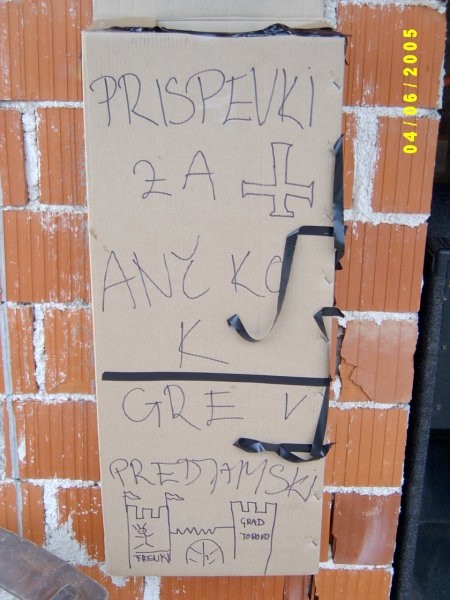 PRISPEVKI
ZA
ANČKO
K
GRE V
PREDJAMSKI
GRAD
04/06/2005